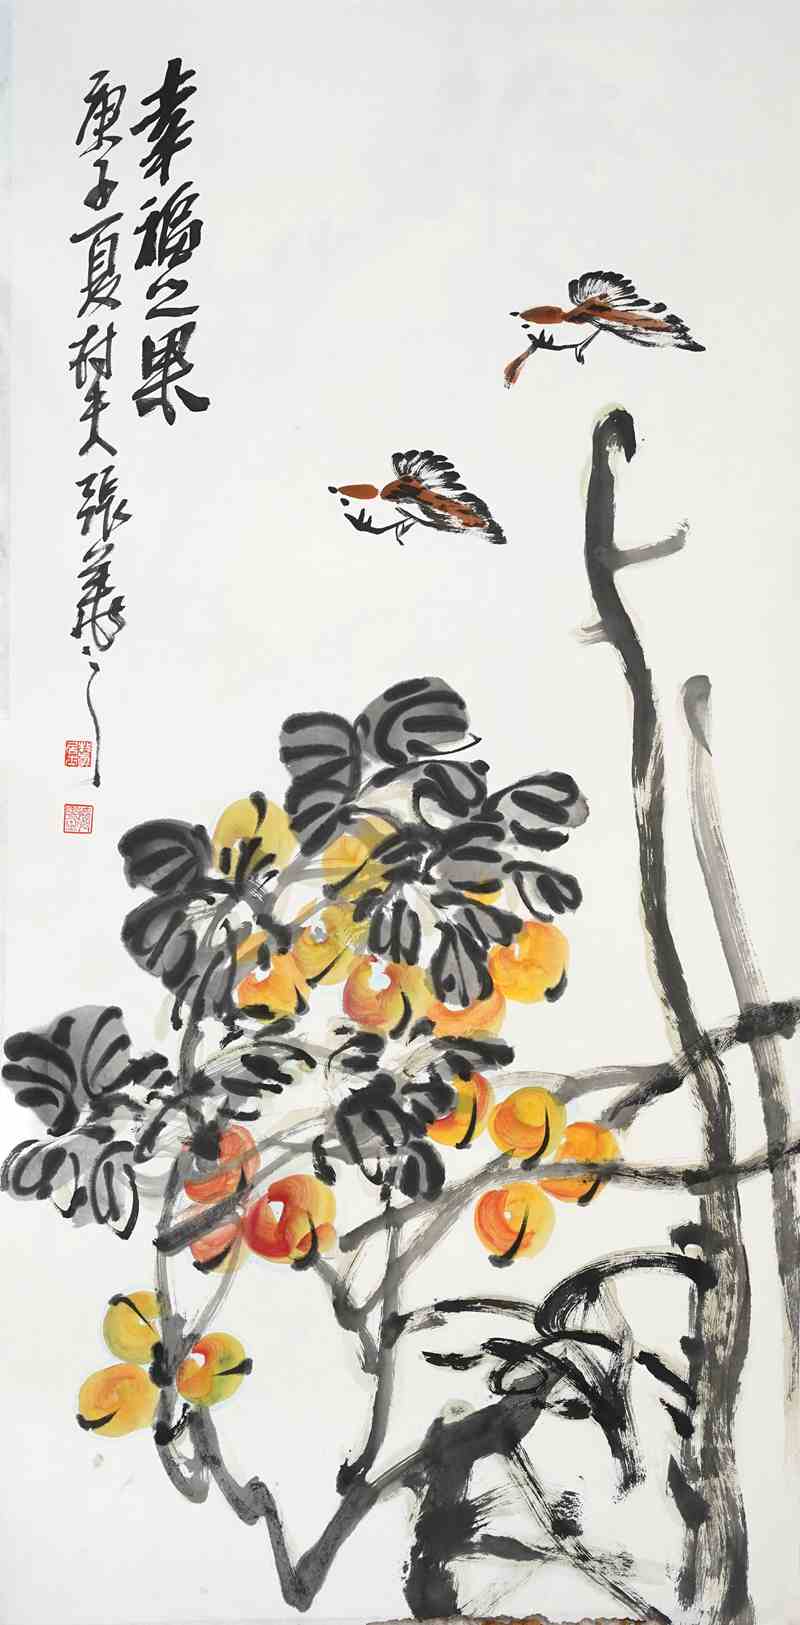 幸福之果
庚子夏村夫張華之